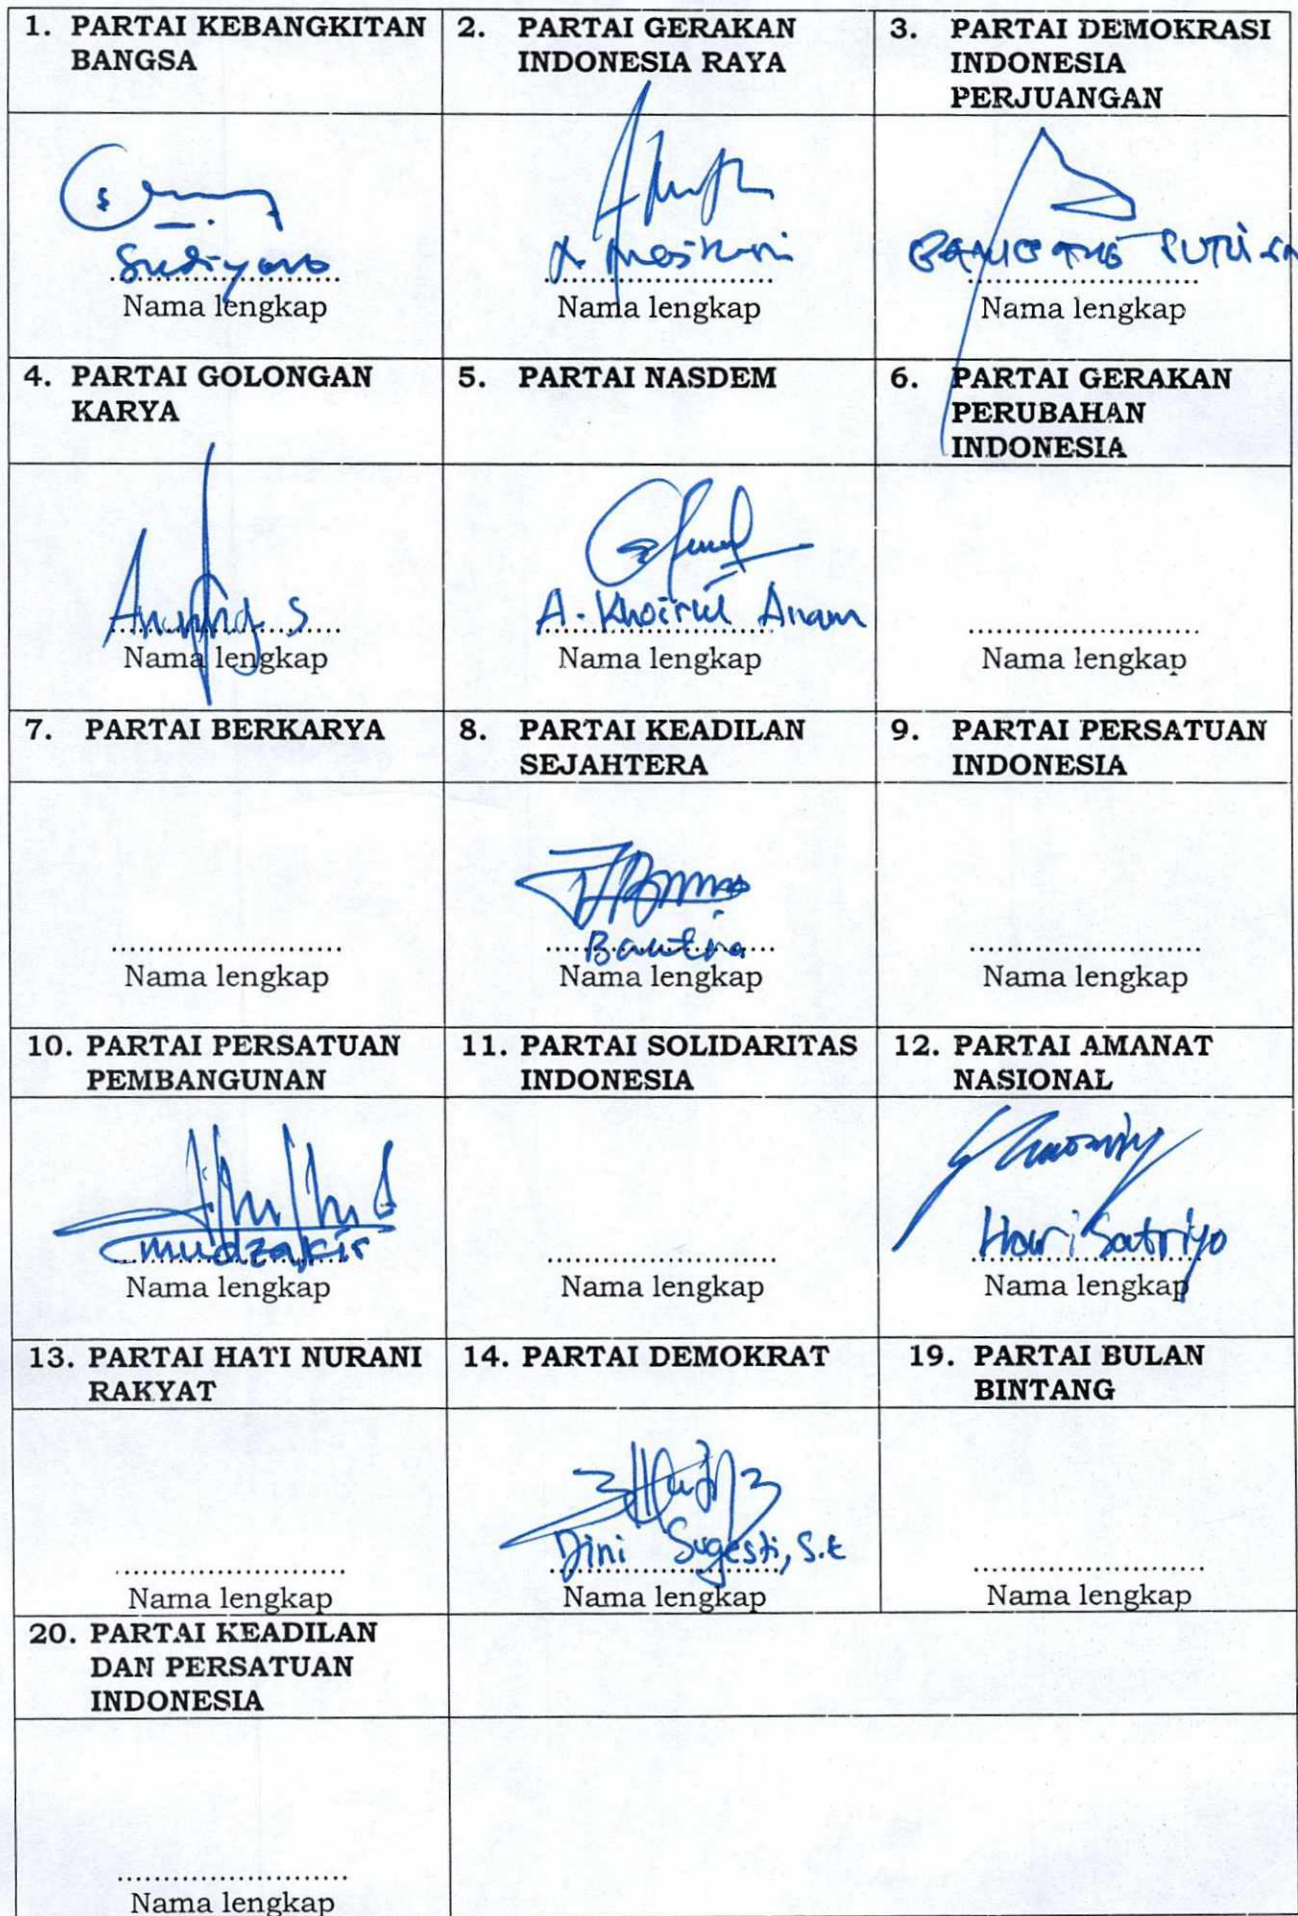 1. PARTAI KEBANGKITAN
BANGSA
2. PARTAI GERAKAN
INDONESIA RAYA
3. PARTAI DEMOKRASI
INDONESIA
PERJUANGAN
Sudiyono
....................
Nama lengkap
....................
Nama lengkap
....................
Nama lengkap
4. PARTAI GOLONGAN
KARYA
5. PARTAI NASDEM
6. PARTAI GERAKAN
PERUBAHAN
INDONESIA
S
....................
Nama lengkap
A. Khoirul Anam
....................
Nama lengkap
....................
Nama lengkap
7. PARTAI BERKARYA
8. PARTAI KEADILAN
SEJAHTERA
9. PARTAI PERSATUAN
INDONESIA
....................
Nama lengkap
....................
Nama lengkap
....................
Nama lengkap
10. PARTAI PERSATUAN
PEMBANGUNAN
11. PARTAI SOLIDARITAS
INDONESIA
12. PARTAI AMANAT
NASIONAL
mudzakir
....................
Nama lengkap
....................
Nama lengkap
Hari Satriyo
....................
Nama lengkap
13. PARTAI HATI NURANI
RAKYAT
14. PARTAI DEMOKRAT
19. PARTAI BULAN
BINTANG
....................
Nama lengkap
Dini Sugesti, S.E
....................
Nama lengkap
....................
Nama lengkap
20. PARTAI KEADILAN
DAN PERSATUAN
INDONESIA
....................
Nama lengkap